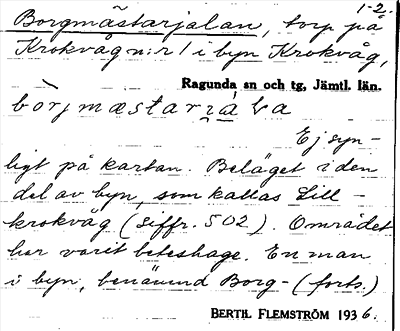 1-2.
Borgmästarjalan, torp på
Krokvåg n:r 1 i byn Krokvåg,
Ragunda sn och tg, Jämtl. län.
Ej syn-
ligt på kartan. Beläget i den
del av byn, som kallas Lill-
krokvåg (siffr. 502). Området
har varit beteshage. En man
i byn, benämnd Borg- (forts.)
BERTIL FLEMSTRÖM 1936.